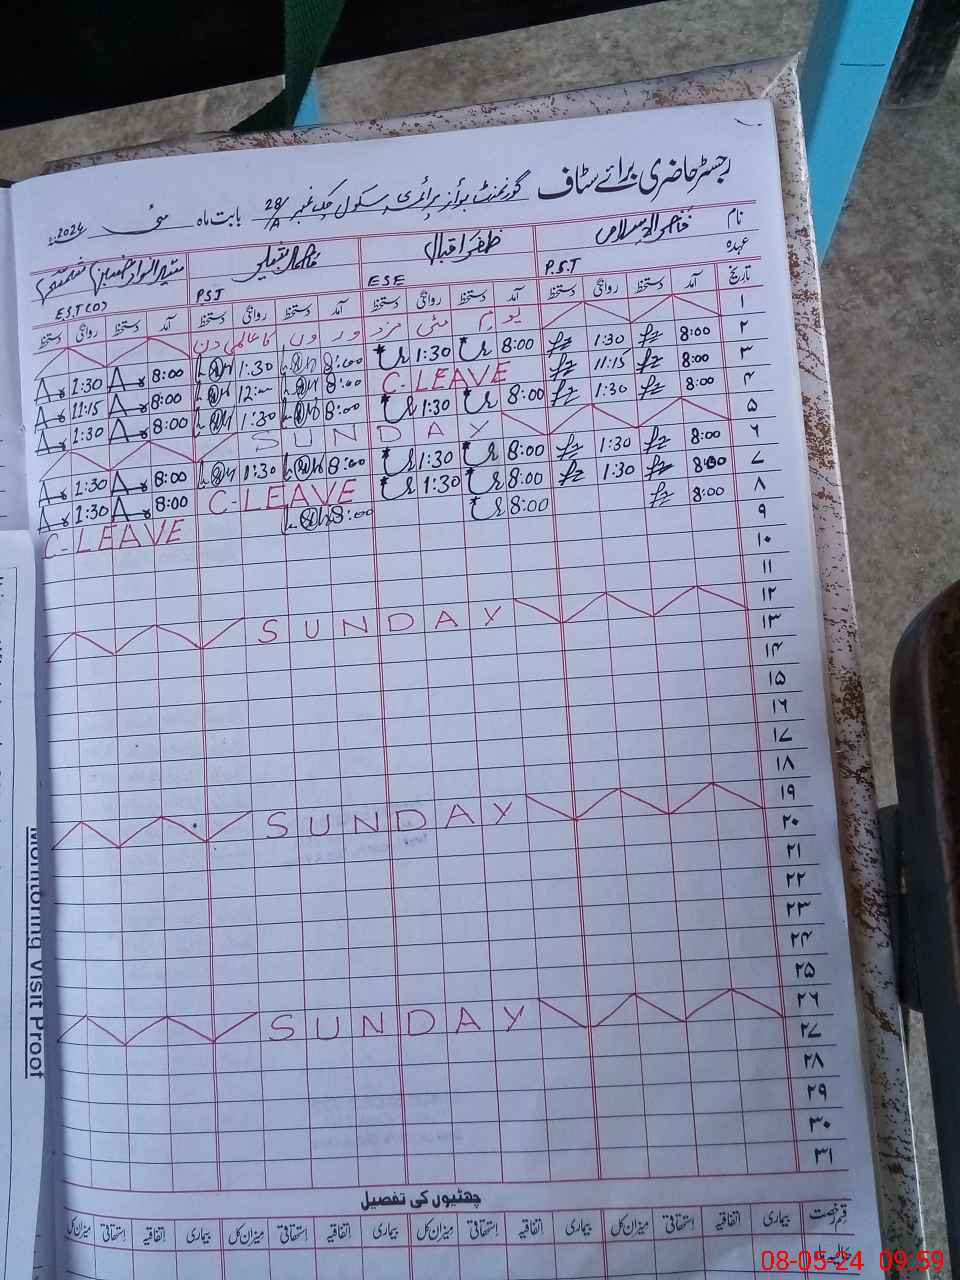 رجسٹر حاضری برائے سٹاف
گورنمنٹ بوائز پرائمری سکول چک نمبر 28/A بابت ماہ مئی 2024ء
نام
ظفر اقبال
عہدہ P.S.T E.S.E P.S.T E.S.T(O)
تاریخ آمد دستخط روانگی دستخط آمد دستخط روانگی دستخط آمد دستخط روانگی دستخط آمد دستخط روانگی دستخط
۱ یوم مئی مزدوروں کا عالمی دن
۲ 8:00 1:30 8:00 1:30 8:00 1:30 8:00 1:30
۳ 8:00 11:15 C-LEAVE 8:00 12:00 8:00 11:15
۴ 8:00 1:30 8:00 1:30 8:00 1:30 8:00 1:30
۵ SUNDAY
۶ 8:00 1:30 8:00 1:30 8:00 1:30 8:00 1:30
۷ 8:00 1:30 8:00 1:30 C-LEAVE 8:00 1:30
۸ 8:00 8:00 8:00 C-LEAVE
۹
۱۰
۱۱
۱۲ SUNDAY
۱۳
۱۴
۱۵
۱۶
۱۷
۱۸
۱۹ SUNDAY
۲۰
۲۱
۲۲
۲۳
۲۴
۲۵
۲۶ SUNDAY
۲۷
۲۸
۲۹
۳۰
۳۱
چھٹیوں کی تفصیل
قسم رخصت بیماری اتفاقیہ استحقاقی میزان کل بیماری اتفاقیہ استحقاقی میزان کل بیماری اتفاقیہ استحقاقی میزان کل بیماری اتفاقیہ استحقاقی میزان کل
Monitoring Visit Proof
08-05-24 09:59